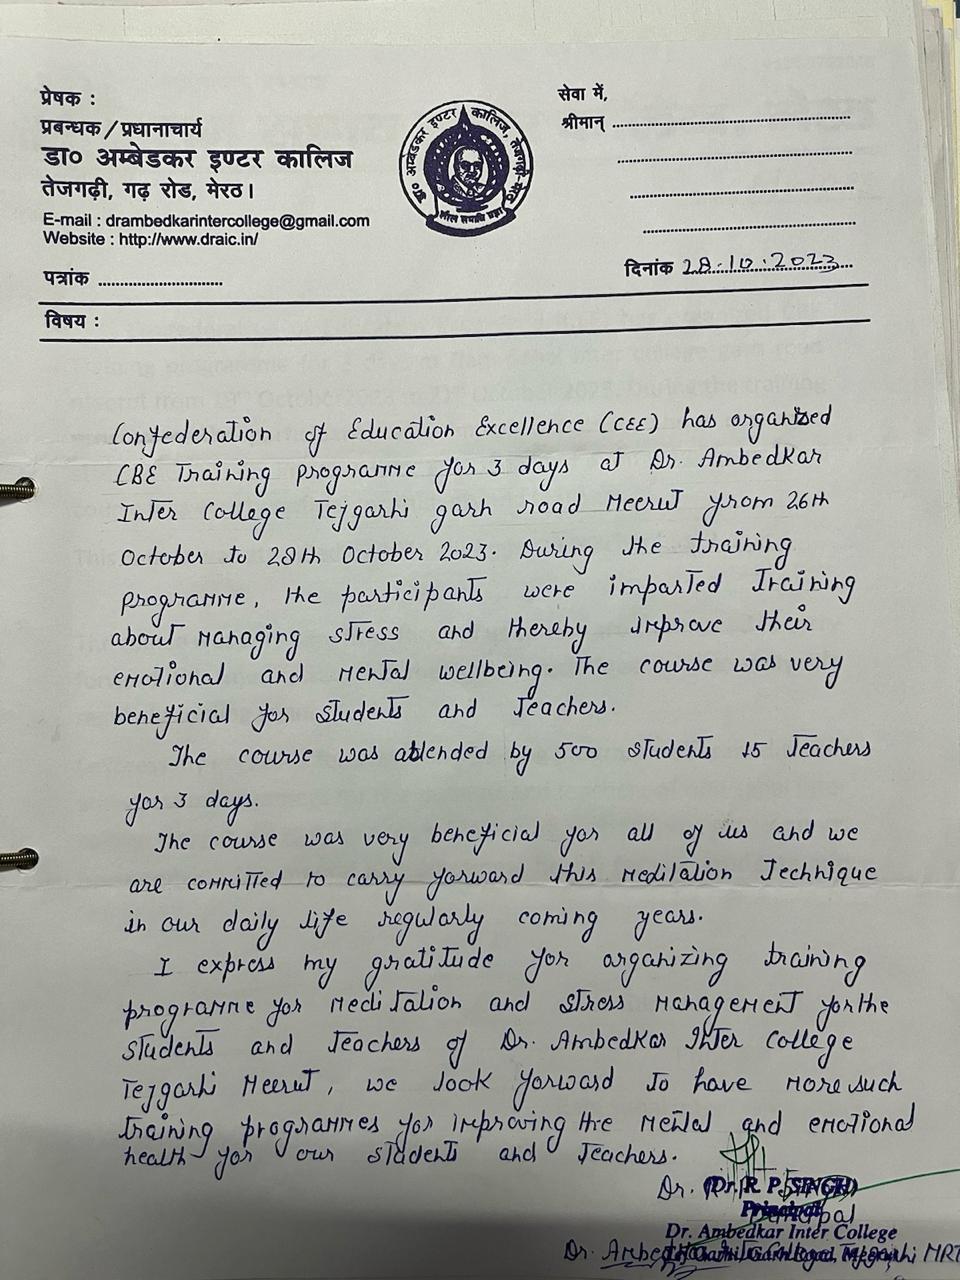 प्रेषक :
प्रबन्धक/प्रधानाचार्य
डा० अम्बेडकर इण्टर कालिज
तेजगढ़ी, गढ़ रोड, मेरठ।
E-mail : drambedkarintercollege@gmail.com
Website : http://www.draic.in/
पत्रांक ...............................
डा० अम्बेडकर इण्टर कालिज, तेजगढ़ी-मेरठ
सेवा में,
श्रीमान् ............................................................
दिनांक 28.10.2023
विषय :
Confederation of Education Excellence (CEE) has organized
CBE Training programme for 3 days at Dr. Ambedkar
Inter College Tejgarhi garh road Meerut from 26th
October to 28th October 2023. During the training
programme, the participants were imparted Training
about managing stress and thereby improve their
emotional and mental wellbeing. The course was very
beneficial for students and teachers.
The course was attended by 500 students 15 teachers
for 3 days.
The course was very beneficial for all of us and we
are committed to carry forward this meditation Technique
in our daily life regularly coming years.
I express my gratitude for organizing training
programme for meditation and stress management for the
students and teachers of Dr. Ambedkar Inter College
Tejgarhi Meerut, we look forward to have more such
training programmes for improving the mental and emotional
health for our students and teachers.
(Dr. R. P. SINGH)
Principal
Dr. Ambedkar Inter College